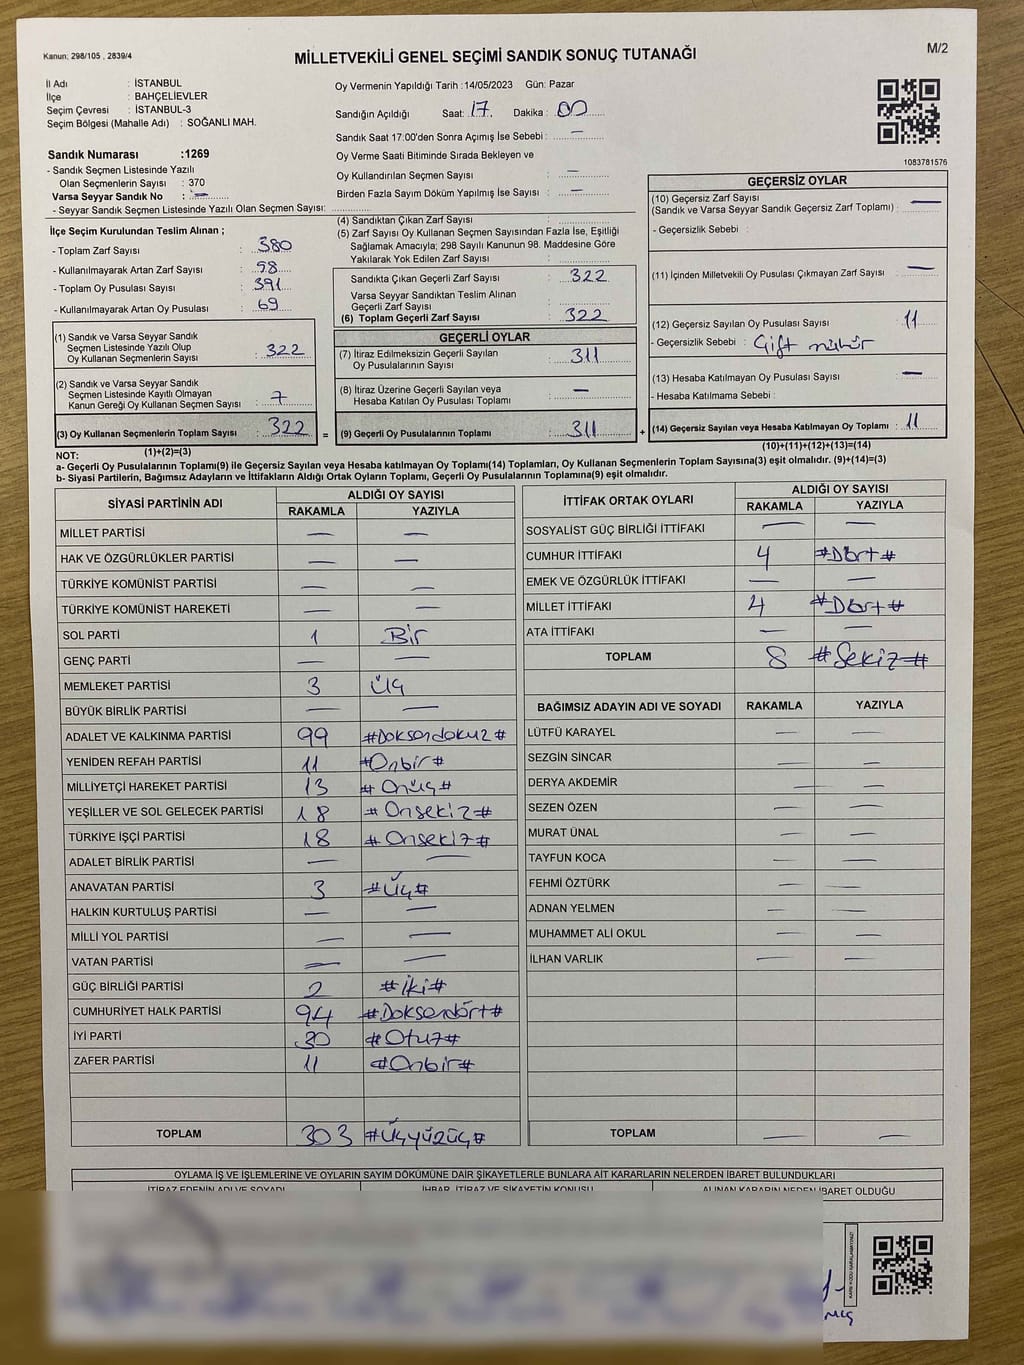 Kanun: 298/105 , 2839/4
MİLLETVEKİLİ GENEL SEÇİMİ SANDIK SONUÇ TUTANAĞI
M/2
İl Adı : İSTANBUL
İlçe : BAHÇELİEVLER
Seçim Çevresi : İSTANBUL-3
Seçim Bölgesi (Mahalle Adı) : SOĞANLI MAH.
Sandık Numarası :1269
- Sandık Seçmen Listesinde Yazılı
Olan Seçmenlerin Sayısı : 370
Varsa Seyyar Sandık No : —
- Seyyar Sandık Seçmen Listesinde Yazılı Olan Seçmen Sayısı:
İlçe Seçim Kurulundan Teslim Alınan ;
- Toplam Zarf Sayısı : 380
- Kullanılmayarak Artan Zarf Sayısı : 58
- Toplam Oy Pusulası Sayısı : 391
- Kullanılmayarak Artan Oy Pusulası : 69
(1) Sandık ve Varsa Seyyar Sandık
Seçmen Listesinde Yazılı Olup
Oy Kullanan Seçmenlerin Sayısı : 322
(2) Sandık ve Varsa Seyyar Sandık
Seçmen Listesinde Kayıtlı Olmayan
Kanun Gereği Oy Kullanan Seçmen Sayısı : 7
(3) Oy Kullanan Seçmenlerin Toplam Sayısı : 322
(1)+(2)=(3)
Oy Vermenin Yapıldığı Tarih :14/05/2023 Gün: Pazar
Sandığın Açıldığı Saat: 17. Dakika : 00
Sandık Saat 17:00'den Sonra Açımış İse Sebebi : —
Oy Verme Saati Bitiminde Sırada Bekleyen ve
Oy Kullandırılan Seçmen Sayısı : —
Birden Fazla Sayım Döküm Yapılmış İse Sayısı : —
(4) Sandıktan Çıkan Zarf Sayısı :
(5) Zarf Sayısı Oy Kullanan Seçmen Sayısından Fazla İse, Eşitliği
Sağlamak Amacıyla; 298 Sayılı Kanunun 98. Maddesine Göre
Yakılarak Yok Edilen Zarf Sayısı :
Sandıkta Çıkan Geçerli Zarf Sayısı : 322
Varsa Seyyar Sandıktan Teslim Alınan
Geçerli Zarf Sayısı :
(6) Toplam Geçerli Zarf Sayısı : 322
GEÇERLİ OYLAR
(7) İtiraz Edilmeksizin Geçerli Sayılan
Oy Pusulalarının Sayısı : 311
(8) İtiraz Üzerine Geçerli Sayılan veya
Hesaba Katılan Oy Pusulası Toplamı : —
= (9) Geçerli Oy Pusulalarının Toplamı : 311 +
1083781576
GEÇERSİZ OYLAR
(10) Geçersiz Zarf Sayısı : —
(Sandık ve Varsa Seyyar Sandık Geçersiz Zarf Toplamı) :
- Geçersizlik Sebebi :
(11) İçinden Milletvekili Oy Pusulası Çıkmayan Zarf Sayısı : —
(12) Geçersiz Sayılan Oy Pusulası Sayısı : 11
- Geçersizlik Sebebi : Çift mühür
(13) Hesaba Katılmayan Oy Pusulası Sayısı : —
- Hesaba Katılmama Sebebi :
(14) Geçersiz Sayılan veya Hesaba Katılmayan Oy Toplamı : 11
(10)+(11)+(12)+(13)=(14)
NOT:
a- Geçerli Oy Pusulalarının Toplamı(9) ile Geçersiz Sayılan veya Hesaba katılmayan Oy Toplamı(14) Toplamları, Oy Kullanan Seçmenlerin Toplam Sayısına(3) eşit olmalıdır. (9)+(14)=(3)
b- Siyasi Partilerin, Bağımsız Adayların ve İttifakların Aldığı Ortak Oyların Toplamı, Geçerli Oy Pusulalarının Toplamına(9) eşit olmalıdır.
SİYASİ PARTİNİN ADI ALDIĞI OY SAYISI
RAKAMLA YAZIYLA
MİLLET PARTİSİ — —
HAK VE ÖZGÜRLÜKLER PARTİSİ — —
TÜRKİYE KOMÜNİST PARTİSİ — —
TÜRKİYE KOMÜNİST HAREKETİ — —
SOL PARTİ 1 Bir
GENÇ PARTİ — —
MEMLEKET PARTİSİ 3 Üç
BÜYÜK BİRLİK PARTİSİ — —
ADALET VE KALKINMA PARTİSİ 99 #Doksandokuz#
YENİDEN REFAH PARTİSİ 11 #Onbir#
MİLLİYETÇİ HAREKET PARTİSİ 13 #Onüç#
YEŞİLLER VE SOL GELECEK PARTİSİ 18 #Onsekiz#
TÜRKİYE İŞÇİ PARTİSİ 18 #Onsekiz#
ADALET BİRLİK PARTİSİ — —
ANAVATAN PARTİSİ 3 #Üç#
HALKIN KURTULUŞ PARTİSİ — —
MİLLİ YOL PARTİSİ — —
VATAN PARTİSİ — —
GÜÇ BİRLİĞİ PARTİSİ 2 #İki#
CUMHURİYET HALK PARTİSİ 94 #Doksandört#
İYİ PARTİ 30 #Otuz#
ZAFER PARTİSİ 11 #Onbir#
TOPLAM 303 #Üçyüzüç#
İTTİFAK ORTAK OYLARI ALDIĞI OY SAYISI
RAKAMLA YAZIYLA
SOSYALİST GÜÇ BİRLİĞİ İTTİFAKI — —
CUMHUR İTTİFAKI 4 #Dört#
EMEK VE ÖZGÜRLÜK İTTİFAKI — —
MİLLET İTTİFAKI 4 #Dört#
ATA İTTİFAKI — —
TOPLAM 8 #Sekiz#
BAĞIMSIZ ADAYIN ADI VE SOYADI RAKAMLA YAZIYLA
LÜTFÜ KARAYEL — —
SEZGİN SİNCAR — —
DERYA AKDEMİR — —
SEZEN ÖZEN — —
MURAT ÜNAL — —
TAYFUN KOCA — —
FEHMİ ÖZTÜRK — —
ADNAN YELMEN — —
MUHAMMET ALİ OKUL — —
İLHAN VARLIK — —
TOPLAM — —
OYLAMA İŞ VE İŞLEMLERİNE VE OYLARIN SAYIM DÖKÜMÜNE DAİR ŞİKAYETLERLE BUNLARA AİT KARARLARIN NELERDEN İBARET BULUNDUKLARI
İTİRAZ EDENİN ADI VE SOYADI İHBAR, İTİRAZ VE ŞİKAYETİN KONUSU ALINAN KARARIN NEDEN İBARET OLDUĞU